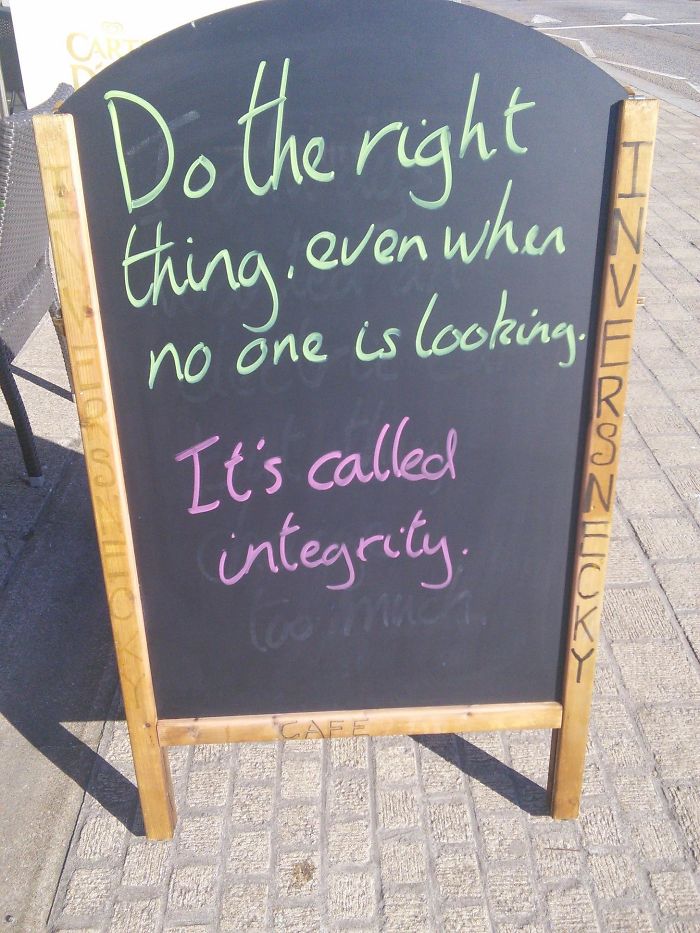 CART
Do the right
thing, even when
no one is looking.
It's called
integrity.
too much.
INVERSNECKY
INVERSNECKY
CAFE